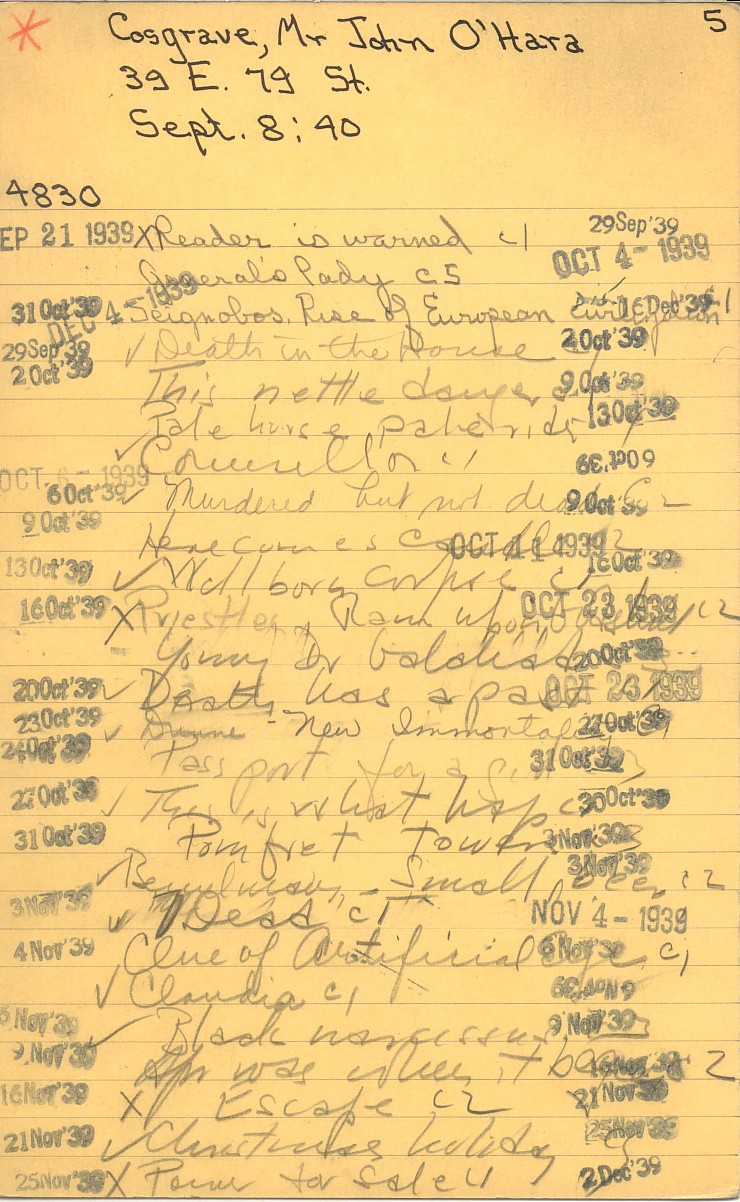 Cosgrave, Mr John O'Hara 5
39 E. 79 St.
Sept. 8; 40
4830
EP 21 1939 X Reader is warned c1 29Sep'39
General's Lady c5 OCT 4-1939
31 Oct'39 DEC 4-1939 Seignobos, Rise of European Civilization 16Dec'39
29Sep'39 ✓ Death in the House 2 Oct'39
2 Oct'39 This nettle danger 9 Oct'39
✓ Pale horse, pale rider 13 Oct'39
OCT. 6-1939 Counsellor c1 6 Oct'39
6 Oct'39 ✓ Murdered but not dead c2 9 Oct'39
9 Oct'39 Here comes OCT 11 1939
13 Oct'39 ✓ Well born corpse c1 16 Oct'39
16 Oct'39 X Priestley, Rain upon c2 OCT 23 1939
Young Dr Galahad 20 Oct'39
20 Oct'39 ✓ Death has a past OCT 23 1939
23 Oct'39 ✓ Dunne - New Immortality 27 Oct'39
24 Oct'39 Passport for a 31 Oct'39
27 Oct'39 ✓ This is what hap 30 Oct'39
31 Oct'39 Pomfret Towers 3 Nov'39
✓ - Small beer c2 3 Nov'39
3 Nov'39 ✓ Dead c1 NOV 4-1939
4 Nov'39 Clue of Artificial Eye c1 6 Nov'39
✓ Claudia c1 6 Nov'39
6 Nov'39 ✓ Black narcissus 9 Nov'39
9 Nov'39 was when it began 2 16 Nov'39
16 Nov'39 X Escape c2 21 Nov'39
21 Nov'39 ✓ Christmas holiday 25 Nov'39
25 Nov'39 X Power for sale c1 2 Dec'39